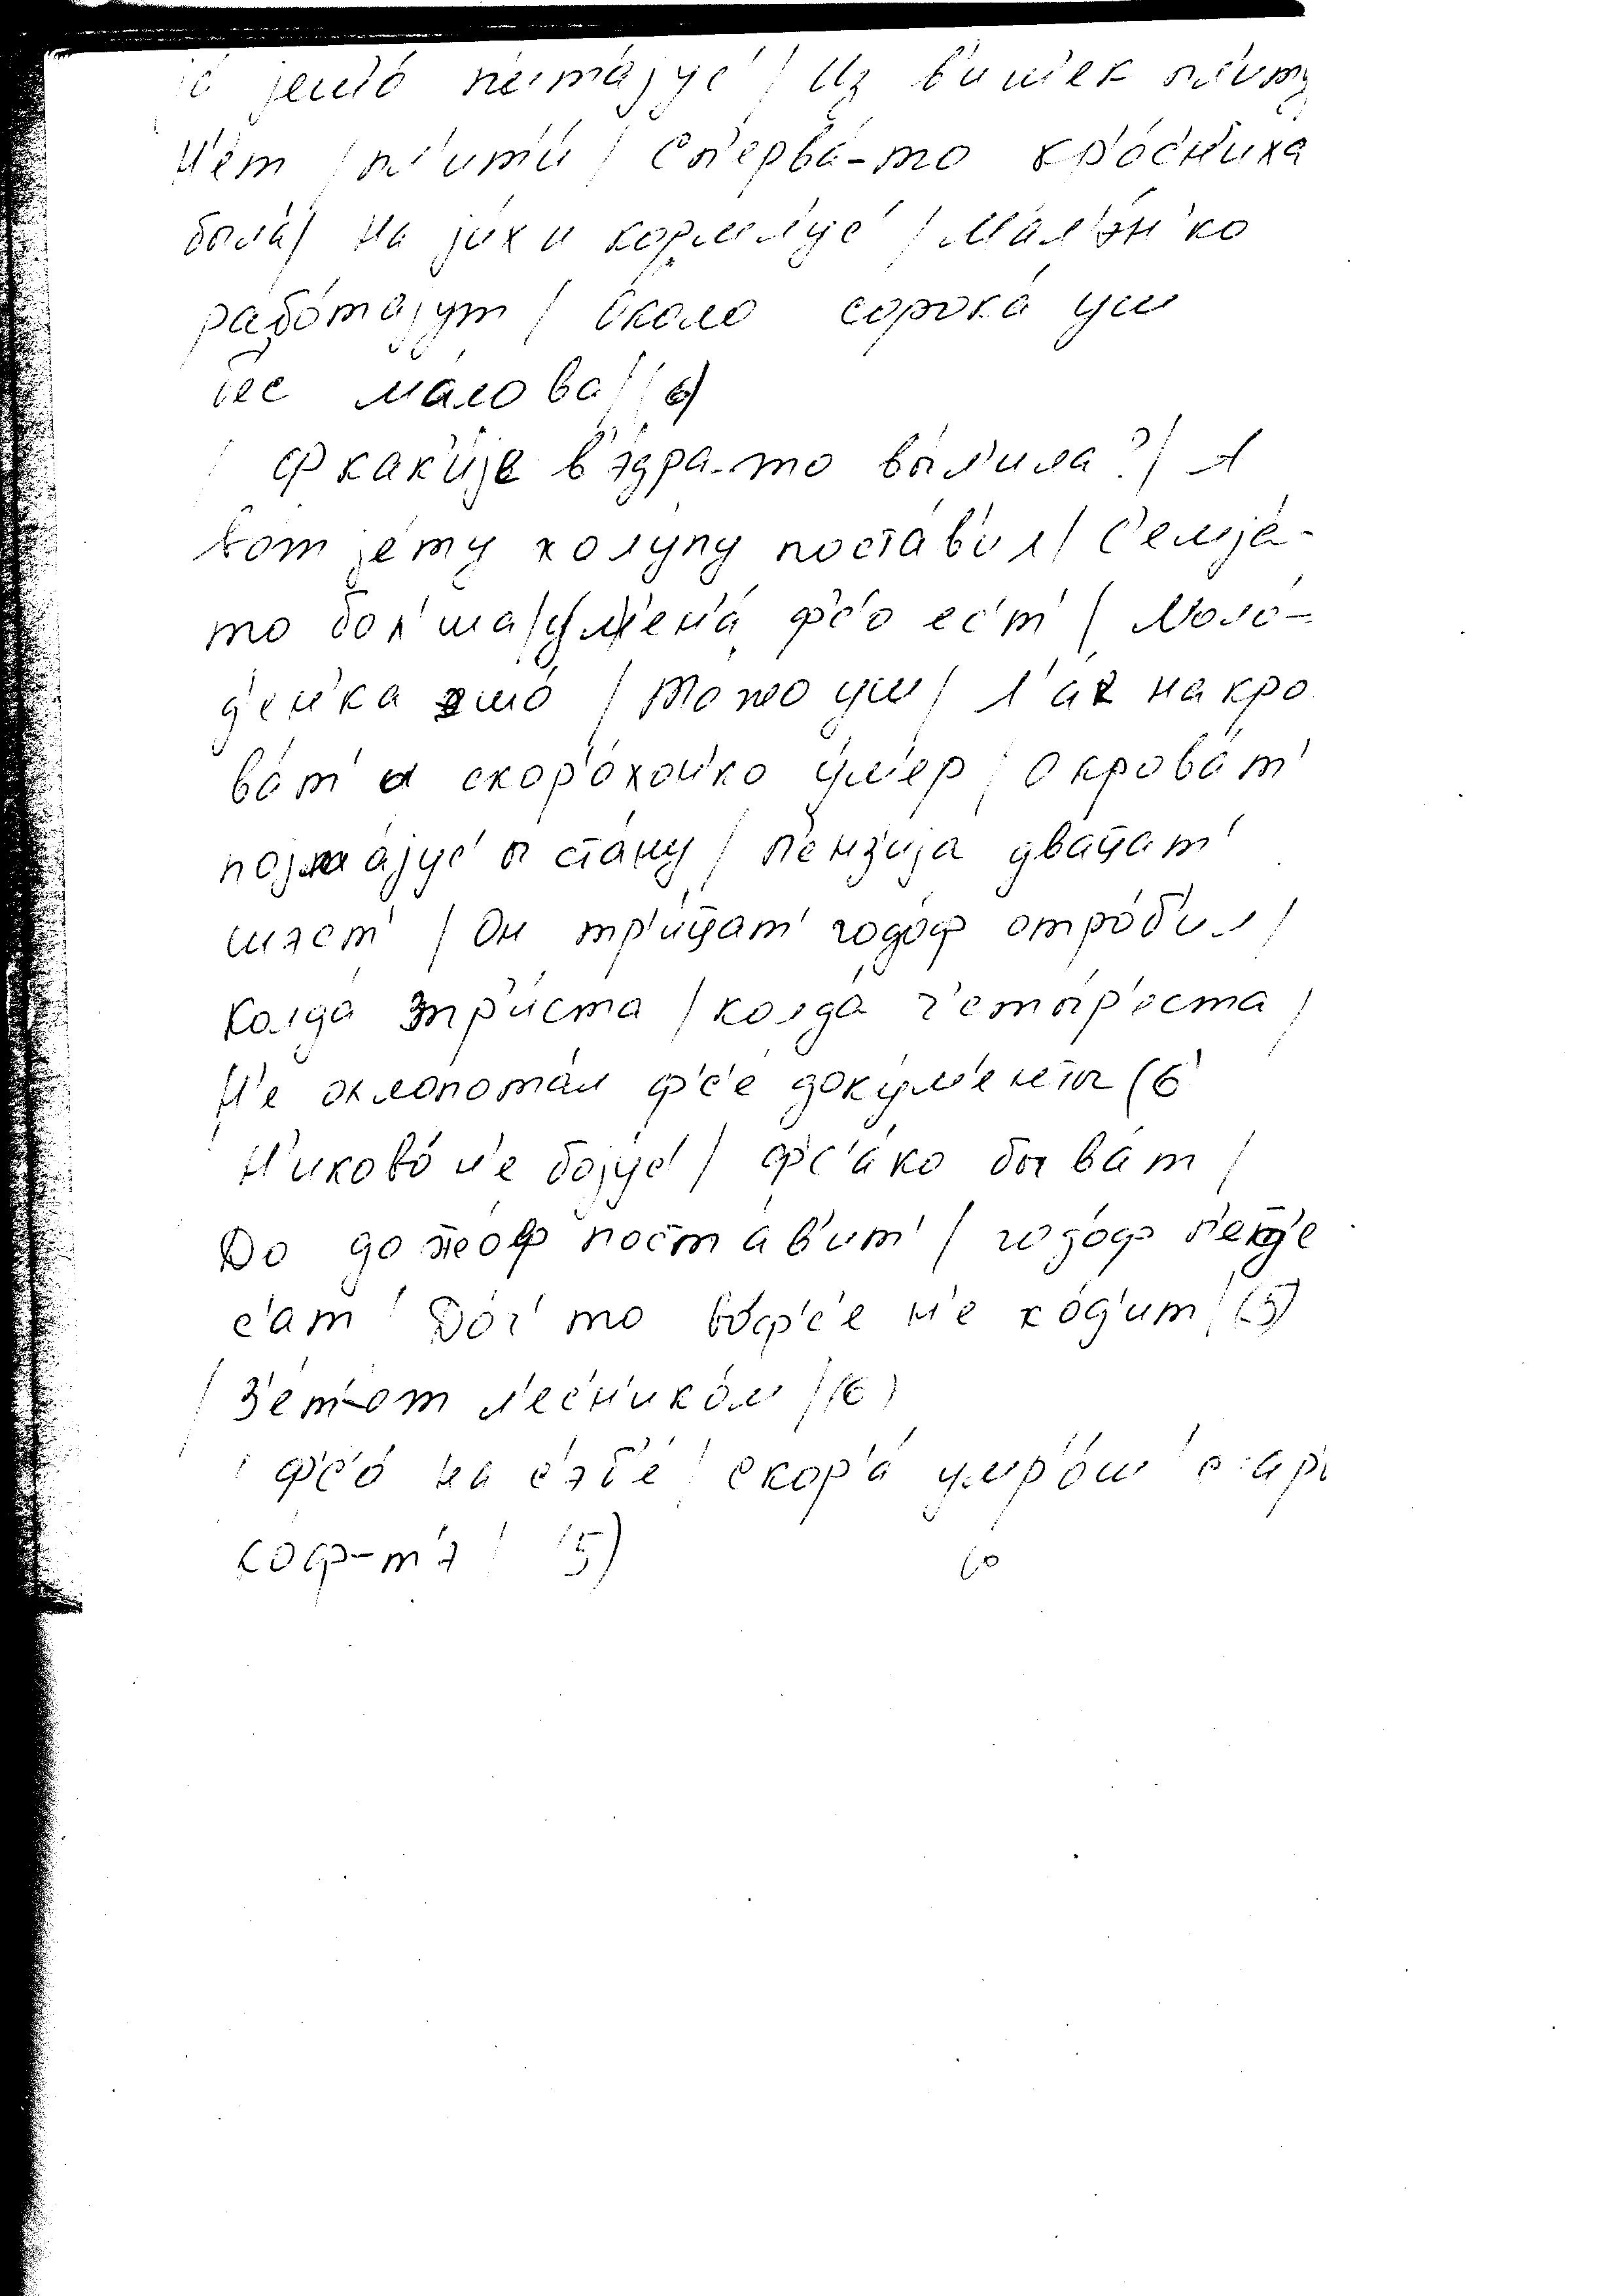 јешо́ п'ита́јус' / Из в'ит'ек пл'иту
Н'ет / пл'ит'и́ / Сп'ерва́-то кр'о́с'н'иха
была́ / На јих и кормл'у́с' / Мал'э́н'ко
рабо́тајут / О́коло сорока́ уш
бес ма́лова / (6)
/ Ф как'и́је в'э́дра-то вы́л'ила? / А
вот је́ту халу́пу поста́в'ил / С'емја́-
то бол'ша / У м'ен'а́ ф'с'о ес'т' / Моло́-
д'ен'ка эшо́ / То́жо уш / Л'ак на кро
ва́т' и скор'о́хон'ко у́м'ер / О крова́т'
појма́јус' и ста́ну / П'е́нз'ија два́цат'
шэст' / Он тр'и́цат' годо́ф отро́б'ил /
Колда́ тр'и́ста / колда́ ч'еты́р'еста /
Н'е охлопота́л ф'с'е доку́м'енты (6
Н'иково́ н'е бојус' / Ф'с'а́ко быва́т /
До дожо́ф поста́в'ит' / годо́ф п'ед'е
с'а́т / До́ч'-то во́ф'с'е н'е хо́д'ит / (5)
/ З'е́т'-от л'ес'н'ико́м / (6)
/ Ф'с'о́ на с'эб'е́ / скор'а́ умр'о́ш
ко́ф-т'э / (5)